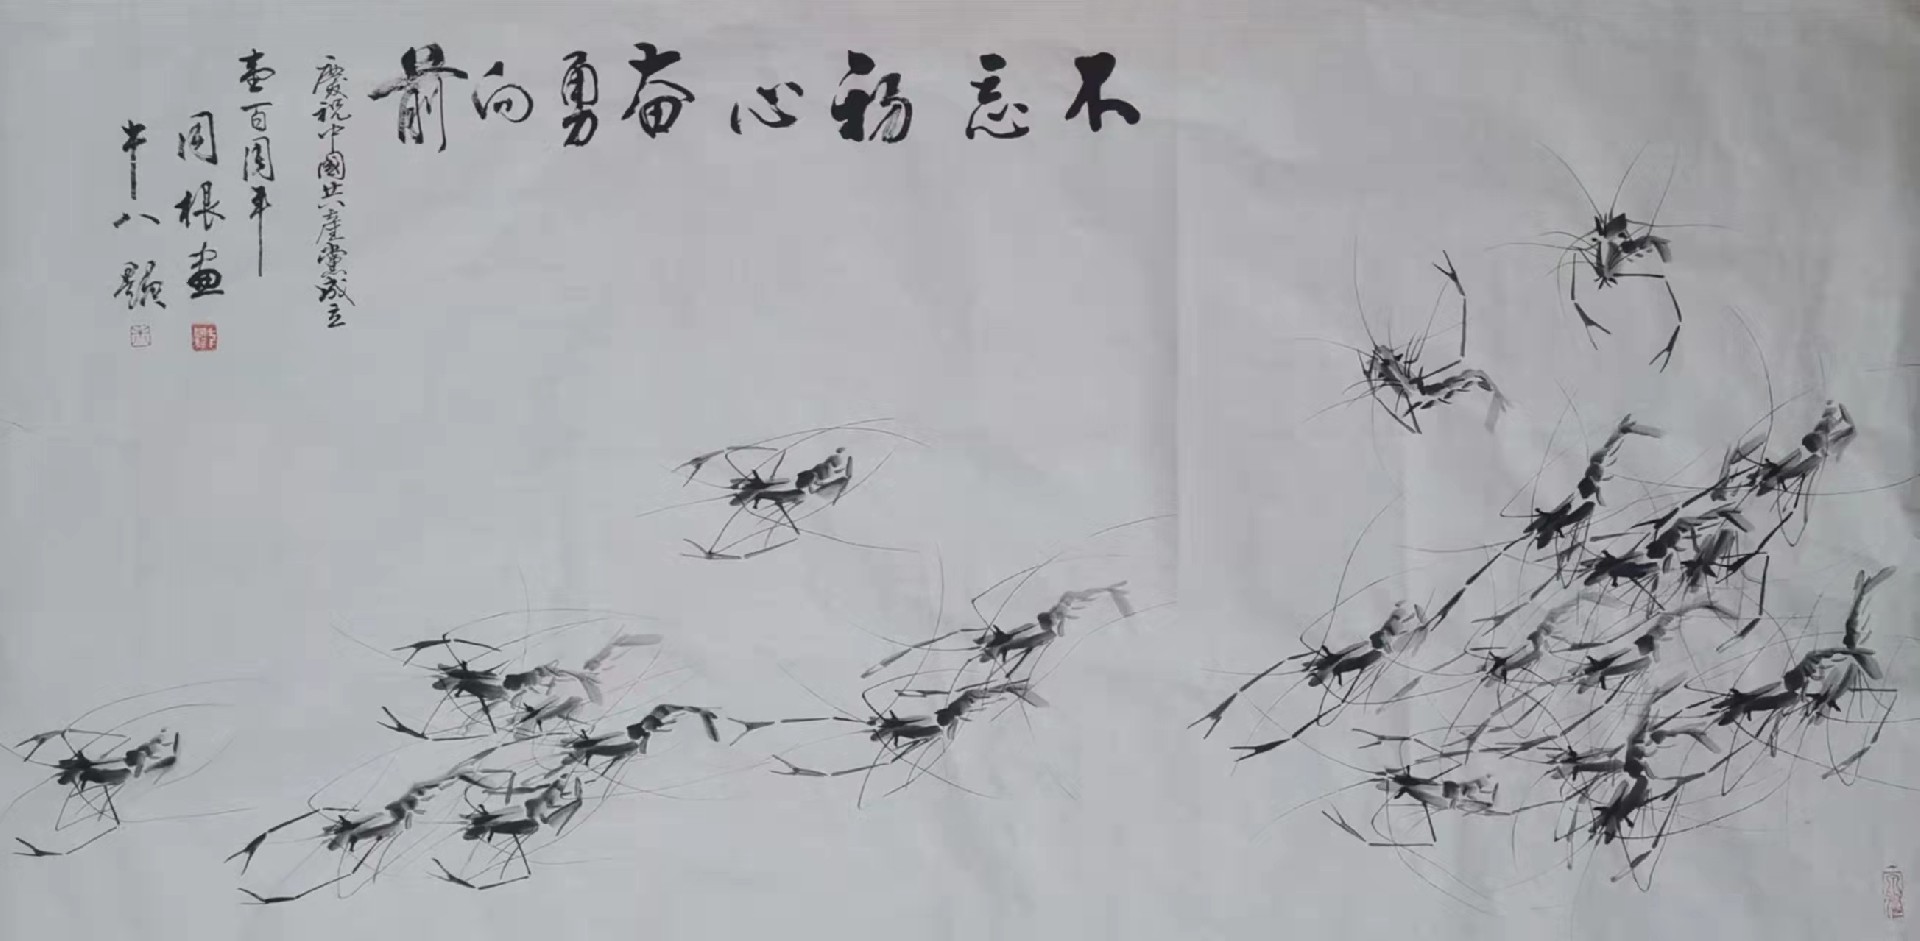 不忘初心奋勇向前
慶祝中國共産黨成立
壹百周年
周根画
牛八題